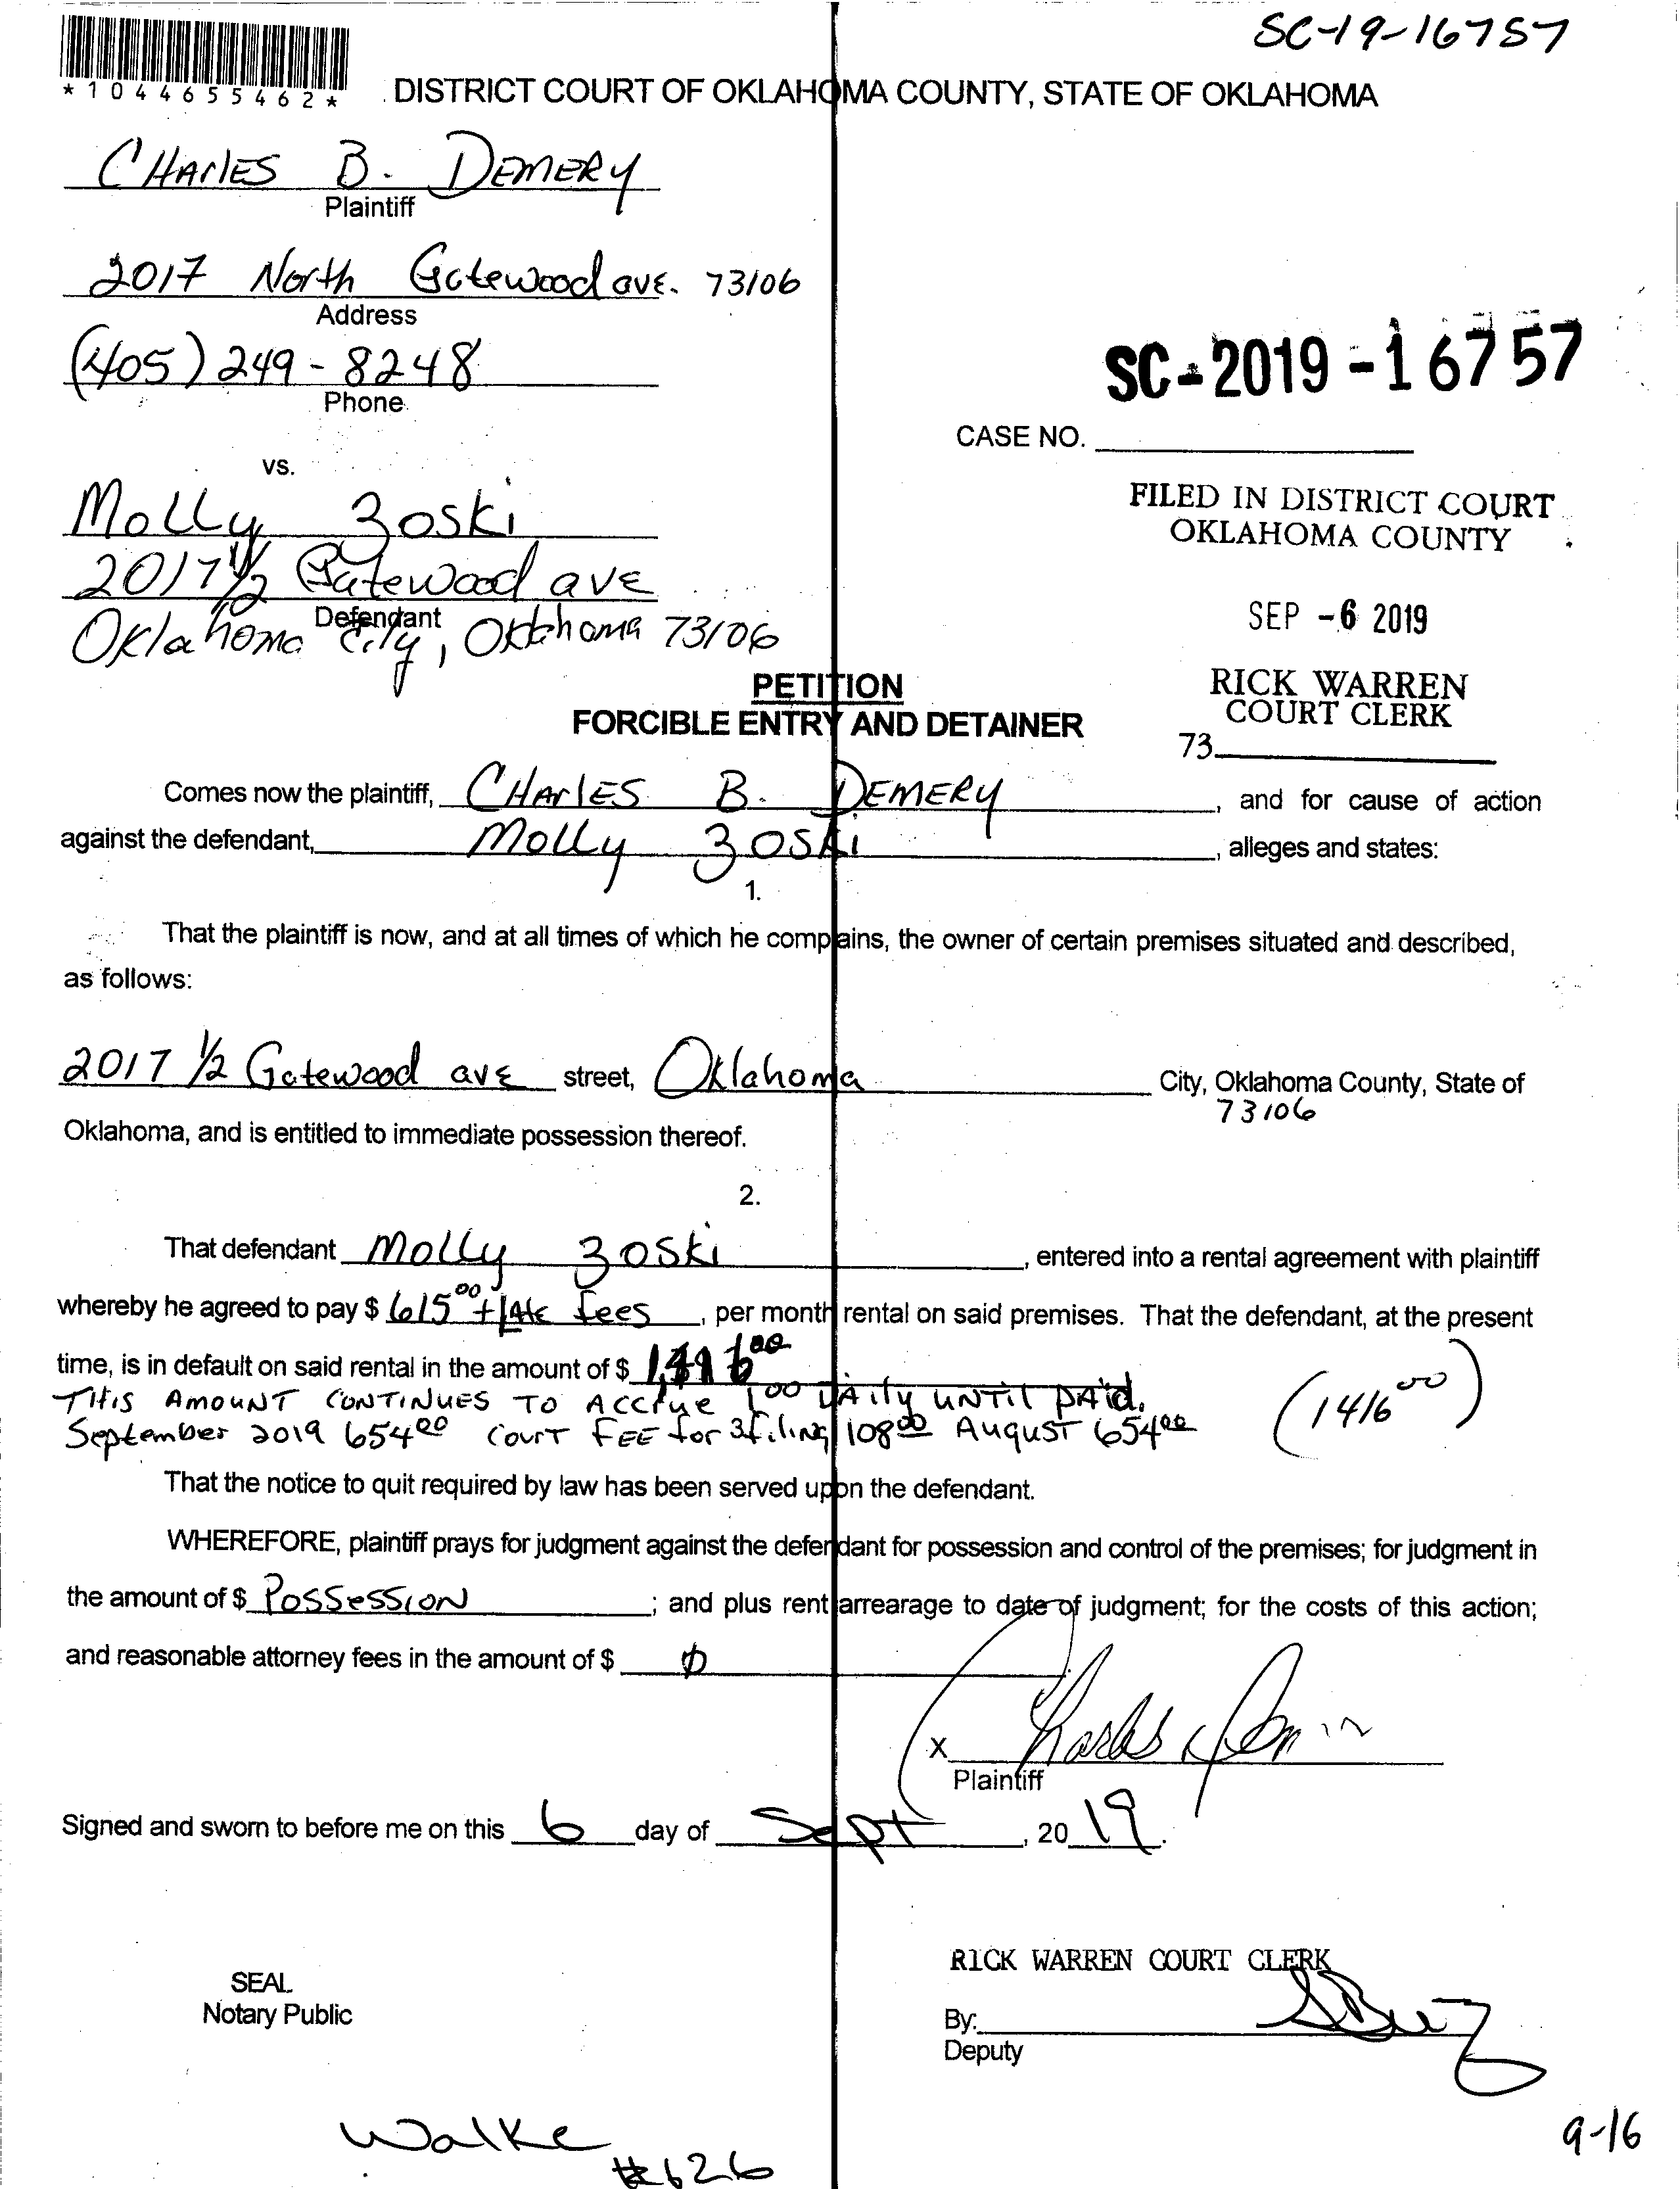 SC-19-16757
*1044655462*
DISTRICT COURT OF OKLAHOMA COUNTY, STATE OF OKLAHOMA
CHArlES B. DEMERY
Plaintiff
2017 North Gatewood ave. 73106
Address
(405) 249-8248
Phone
SC-2019-16757
CASE NO.
vs.
Molly Zoski
2017 1/2 Gatewood ave
Defendant
Oklahoma City, Oklahoma 73106
FILED IN DISTRICT COURT
OKLAHOMA COUNTY
SEP -6 2019
RICK WARREN
COURT CLERK
73
PETITION
FORCIBLE ENTRY AND DETAINER
Comes now the plaintiff, CHArlES B. DEMERY, and for cause of action
against the defendant, Molly Zoski, alleges and states:
1.
That the plaintiff is now, and at all times of which he complains, the owner of certain premises situated and described,
as follows:
2017 1/2 Gatewood ave street, Oklahoma City, Oklahoma County, State of
73106
Oklahoma, and is entitled to immediate possession thereof.
2.
That defendant Molly Zoski, entered into a rental agreement with plaintiff
whereby he agreed to pay $ 615.00 + late fees, per month rental on said premises. That the defendant, at the present
time, is in default on said rental in the amount of $ 1,416.00
THIS AMOUNT CONTINUES TO ACCrue 1.00 DAily UNTil PAid. (1416.00)
September 2019 654.00 Court FEE for 3 filing 108.00 AUGUST 654.00
That the notice to quit required by law has been served upon the defendant.
WHEREFORE, plaintiff prays for judgment against the defendant for possession and control of the premises; for judgment in
the amount of $ POSSeSSION; and plus rent arrearage to date of judgment; for the costs of this action;
and reasonable attorney fees in the amount of $ 0
X
Plaintiff
Signed and sworn to before me on this 6 day of Sept, 2019.
RICK WARREN COURT CLERK
SEAL
Notary Public
By:
Deputy
9-16
Walke
#626